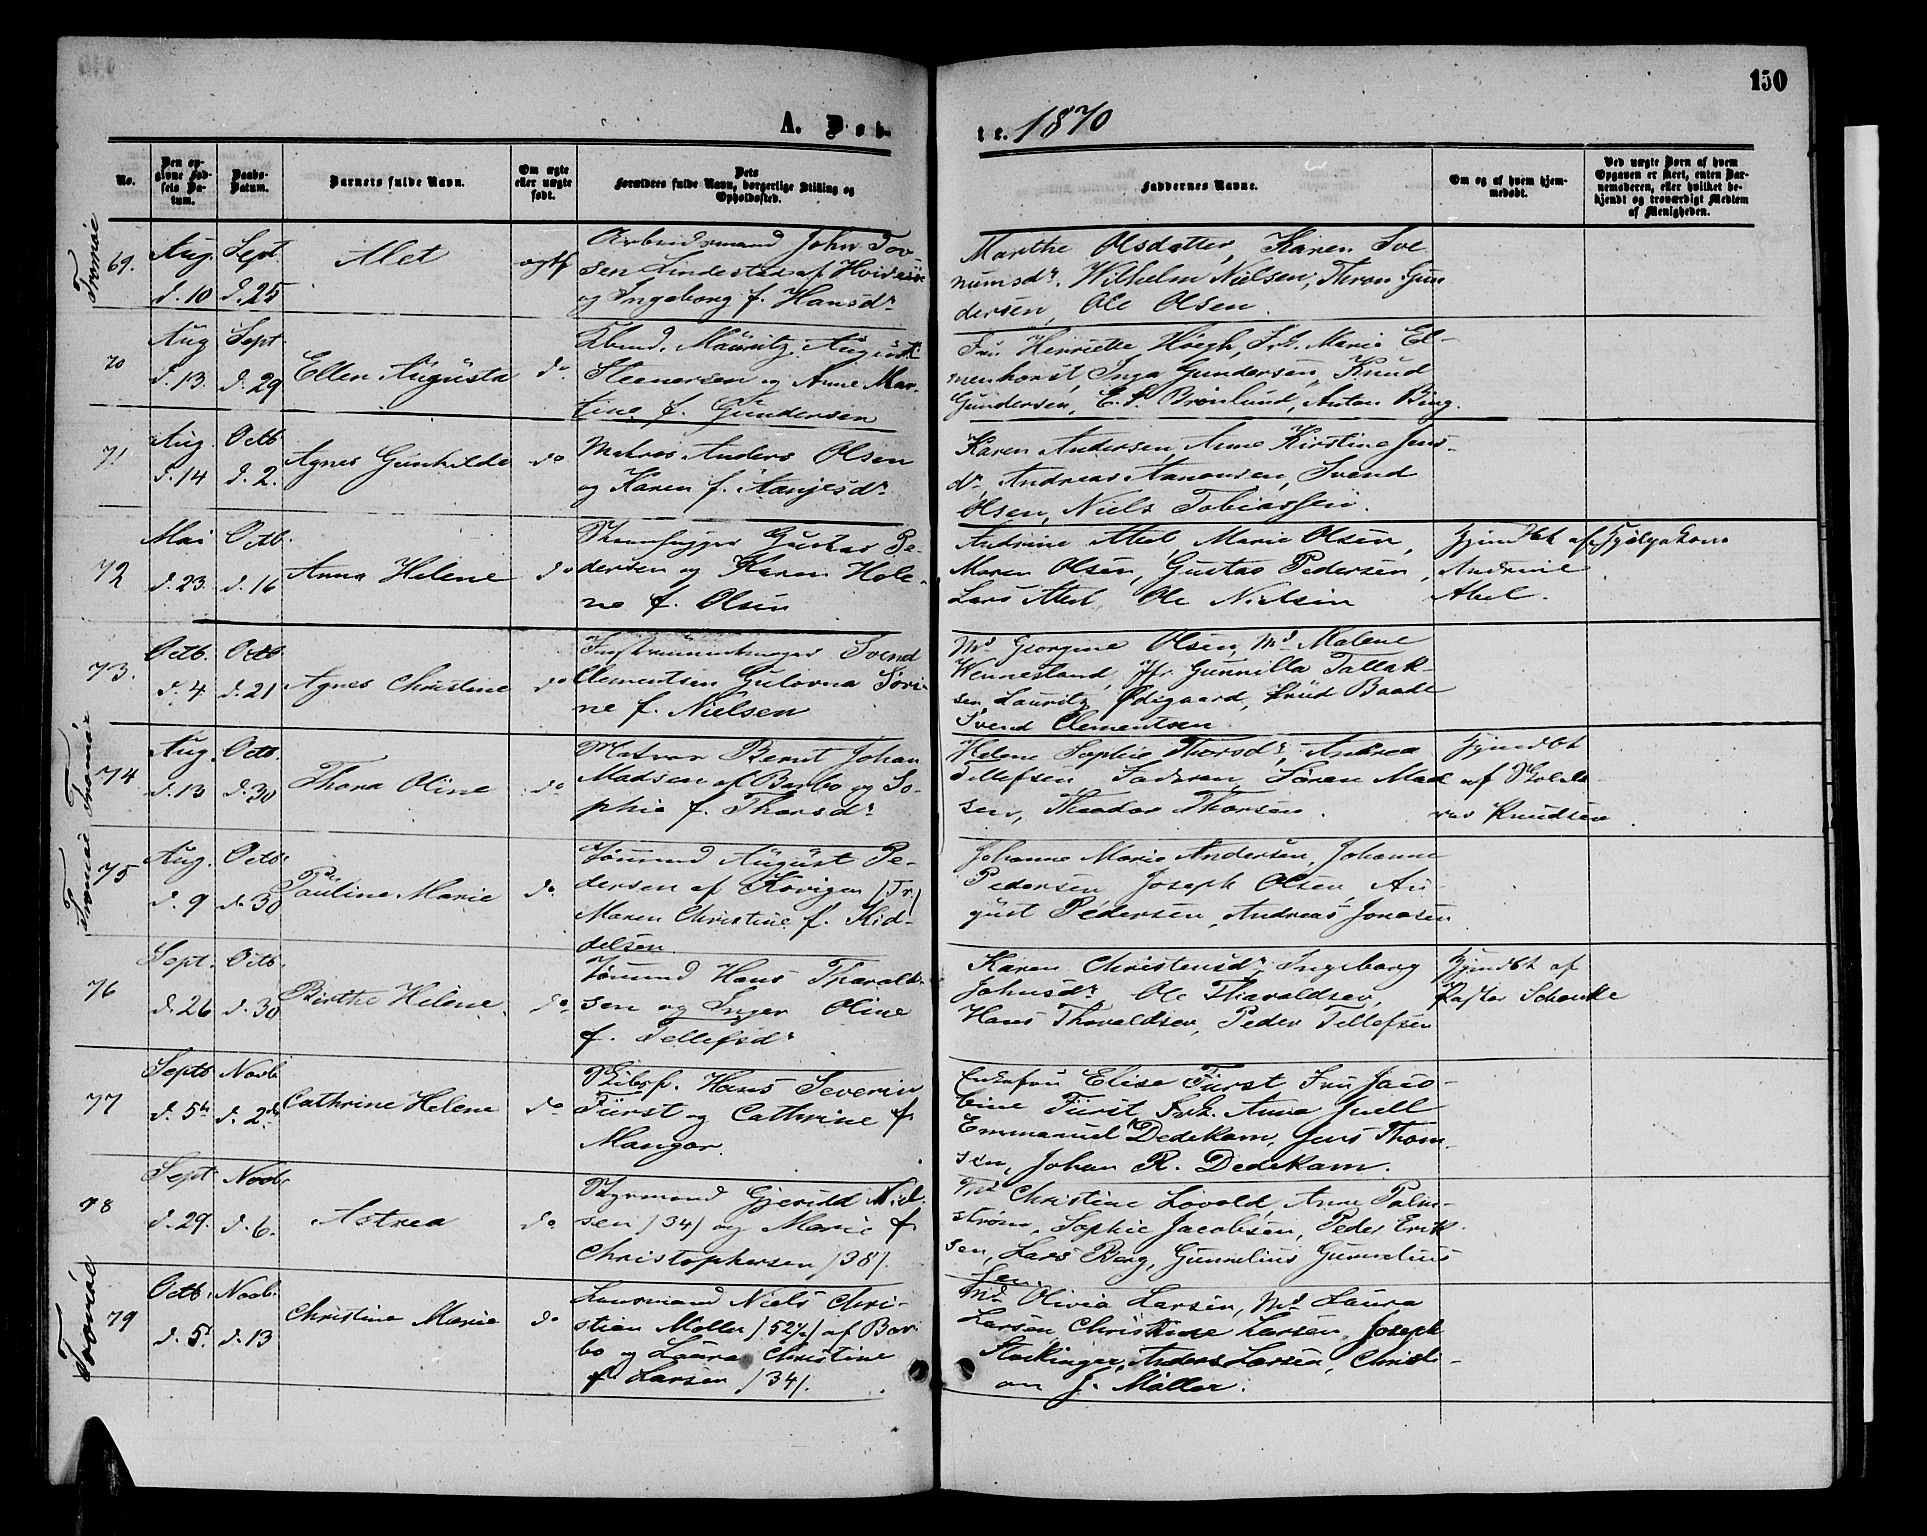 150
A. Døb-
te. 1870
No.
Den opgivne Fødsels Datum.
Daabs-Datum.
Barnets fulde Navn.
Om ægte eller uægte født.
Dets Forældres fulde Navn, borgerlige Stilling og Opholdssted.
Faddernes Navne.
Om og af hvem hjemmedøbt.
Ved uægte Børn af hvem Opgaven er skeet, enten Barnemoderen, eller hvilket bekjendt og troværdigt Medlem af Menigheden.
Tromöe
69. Aug. d. 10 Sept. d. 25 Alet ægte
Arbeidsmand John Tor-
sen Lindestad af Hvidesöe
og Ingeborg f. Hansdr
Marthe Olsdatter, Karen Sve
numsdr. Wilhelm Nielsen, Thron Gun
dersen, Ole Olsen.
70 Aug d. 13. Sept d. 29 Ellen Augusta do
Mauritz August
Steenersen og Anne Mar-
tine f. Gundersen
Fru Henriette Höegh, Marie El-
menhorst, Inga Gundersen, Knud
Gundersen, E. S. Brönlund, Anton Bing.
71 Aug. d. 14 Octb d. 2. Agnes Gunhilde do
Matros Anders Olsen
og Karen f. Aanjesdr
Karen Andersen, Anne Kirstine Jens-
dr, Andreas Aanonsen, Svend
Olsen, Niels Tobiassen.
72 Mai d. 23. Octb. d. 16 Anna Helene do
Gustav Pe-
dersen og Karen Hele-
ne f. Olsen
Andrine Abel Marie Olsen,
Maren Olsen, Gustav Pedersen,
Lars Abel Ole Nielsen
Hjemdbt af
Andrine
Abel.
73. Octb. d. 4 Octb d. 21 Agnes Christine do
Instrumentmager Svend
Clementsen Gulovna Söri-
ne f. Nielsen
Md Georgine Olsen, Md Malene
Wennesland, Jfr. Gunnilla Tallak-
sen, Lauritz Ødigaard, Knud Baade
Svend Clementsen.
Tromöe
74 Aug. d. 13 Octb. d. 30 Thora Oline do
Matros Bernt Johan
Madsen af Barbo og So-
phie f. Thorsdr
Helene Sophie Thorsdr, Andrea
Tellefsen, Sören Mad
sen, Theodor Thorsen.
Hjemdbt
af
Knudsen
Tromöe
75 Aug. d. 9 Octb. d. 30 Pauline Marie do.
Tömmd August Pe-
dersen af Kovigen /Tr/
Maren Christine f. Kid-
delsen
Johanne Marie Andersen, Johanne
Pedersen, Joseph Olsen, Au-
gust Pedersen, Andreas Jonasen
76 Sept. d. 26 Octb. d. 30 Birthe Helene. do
Tömmd Hans Thorvald-
sen og Inger Oline
f. Tellefsdr
Karen Christensdr, Ingeborg
Johnsdr Ole Tharaldsen,
Hans Thoraldsen, Peder Tellefsen
Hjemdbt af
Pastor Schanke
77 Septb d. 5te Novb d. 2den Cathrine Helene do
Skibsf. Hans Severin
Fürst og Cathrine f.
Mangor.
Enkefru Elise Fürst, Fru Jaco-
bine Fürst, Anna Juell
Emmanuel Dedekam, Jens Thom-
sen, Johan R. Dedekam.
78 Sept d. 29. Novb. d. 6. Astrea do
Styrmand Gjeruld Niel-
sen /34/ og Marie f.
Christophersen /38/
Md Christine Lovold, Anne Palm-
ström, Sophie Jacobsen, Peder Erik-
sen, Lars Berg, Gunnelius Gunnelius
sen.
Tromöe
79 Octb. d. 5t Novb. d. 13 Christine Marie do
Niels Chri-
stian Møller /52½/ af Bar-
bo og Laura Christine
f. Larsen /34/.
Md Olivia Larsen, Md Laura
Larsen, Christine Larsen, Joseph
Stockinger, Anders Larsen, Christi-
an J. Møller.